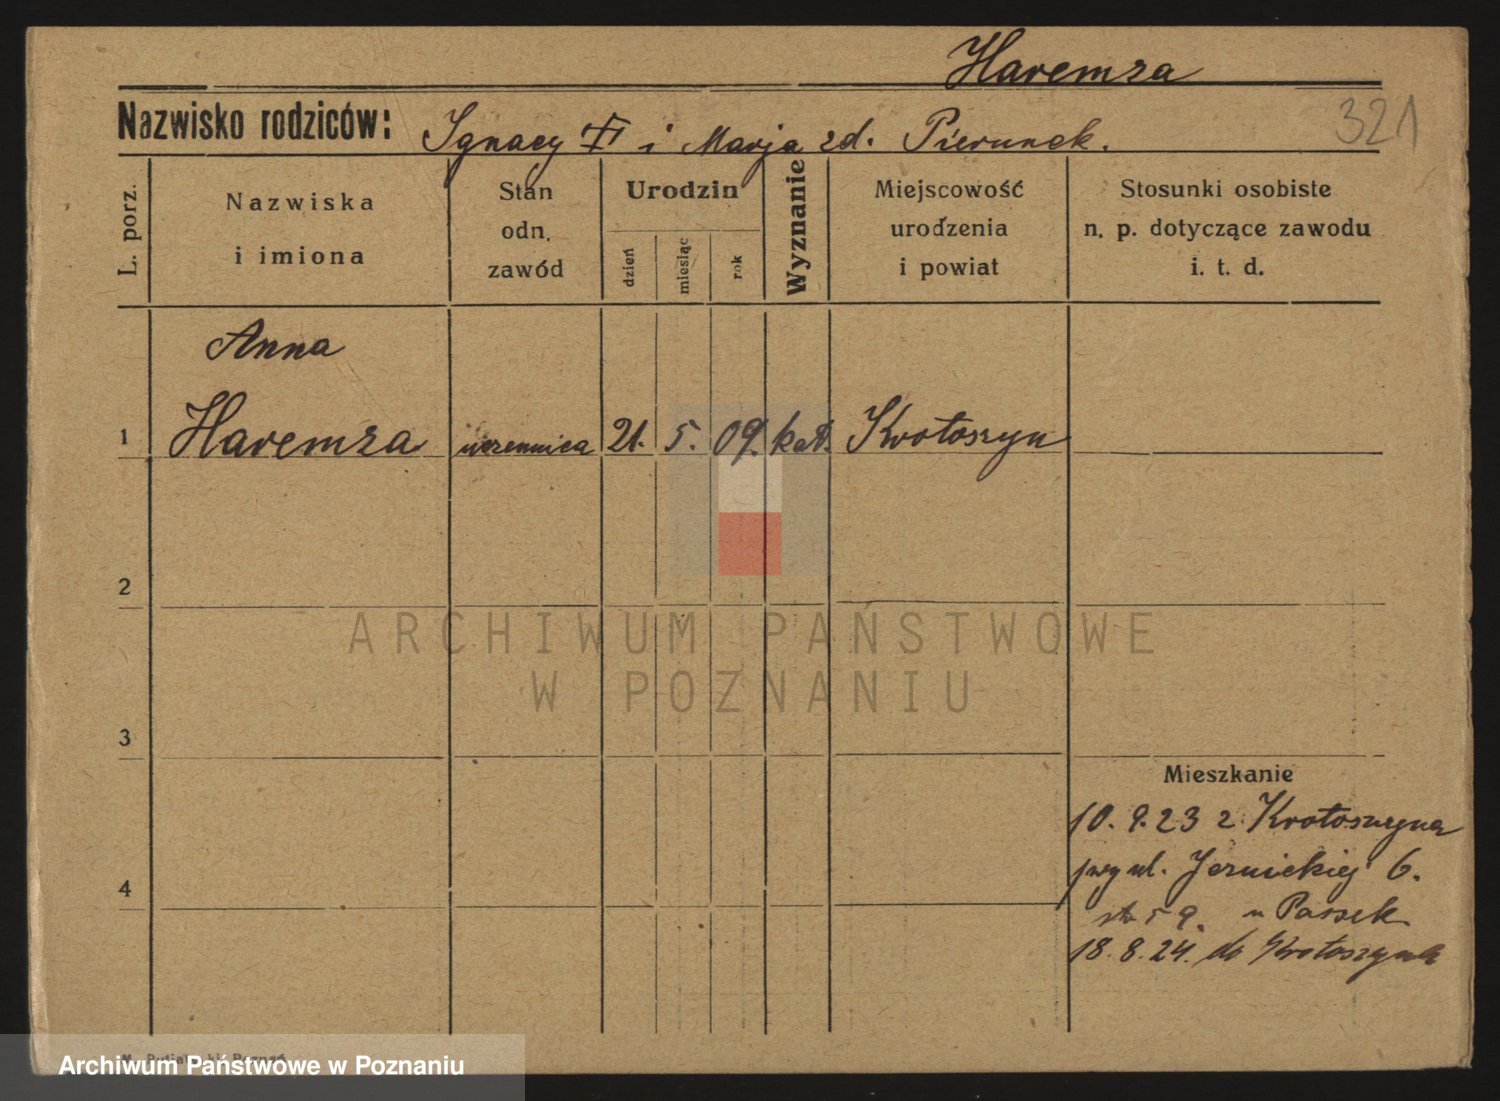 Haremza
Nazwisko rodziców: Ignacy i Marja zd. Pierunek.
321
L. porz.
Nazwiska
i imiona
Stan
odn.
zawód
Urodzin
dzień
miesiąc
rok
Wyznanie
Miejscowość
urodzenia
i powiat
Stosunki osobiste
n. p. dotyczące zawodu
i. t. d.
Anna
1 Haremza uczennica 21. 5. 09. kat. Krotoszyn
2
ARCHIWUM PAŃSTWOWE
W POZNANIU
3
Mieszkanie
10.9.23 z Krotoszyna
4
przy ul. 6.
59. u
18.8.24. do Krotoszyna
Archiwum Państwowe w Poznaniu